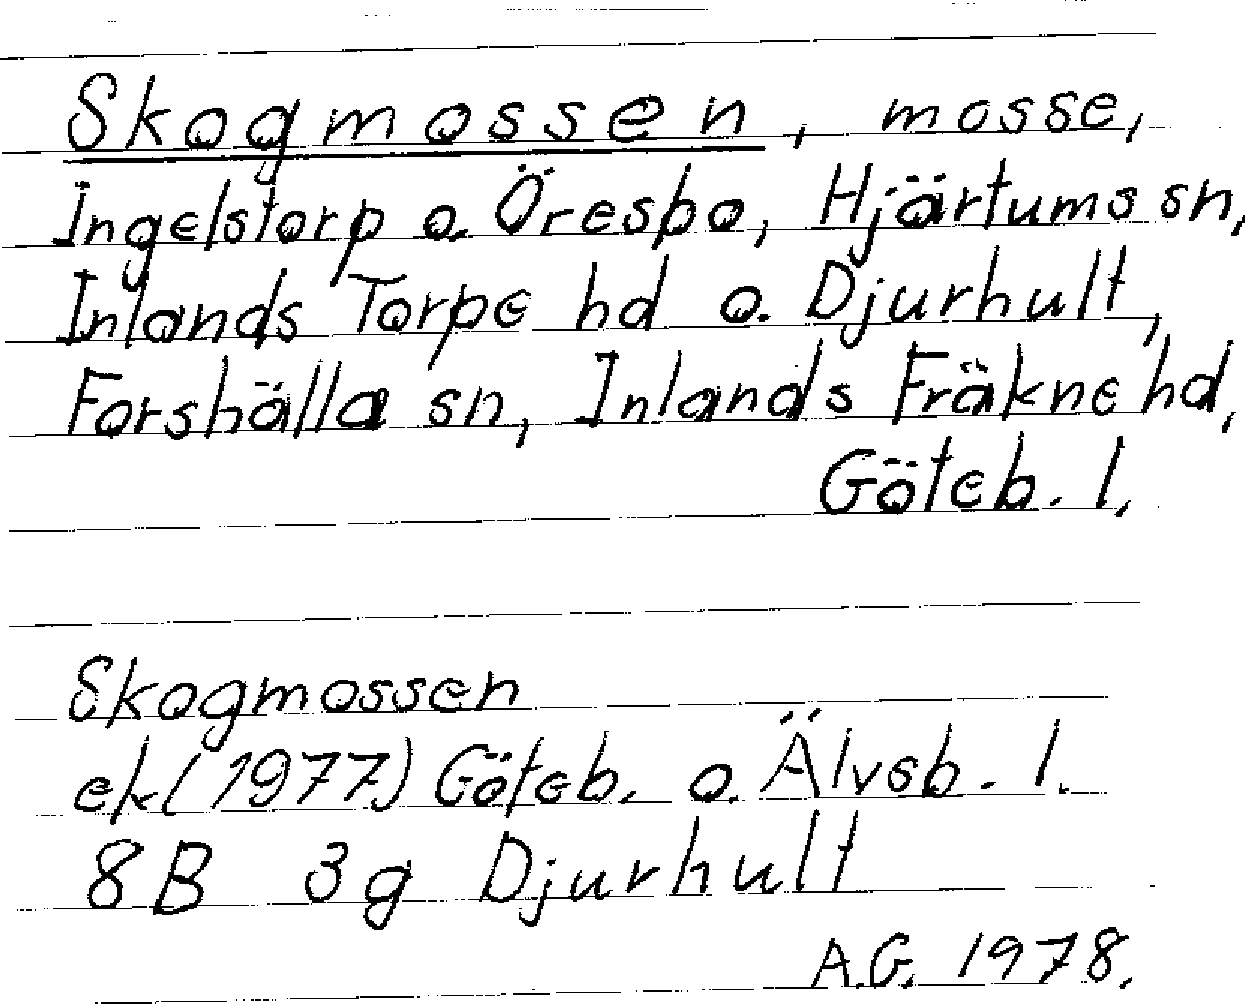 Skogmossen, mosse,
Ingelstorp o. Öresbo, Hjärtums sn,
Inlands Torpe hd o. Djurhult,
Forshälla sn, Inlands Fräkne hd,
Göteb. l,
Skogmossen
ek (1977) Göteb. o. Älvsb. l.
8B 3g Djurhult
A.G. 1978.